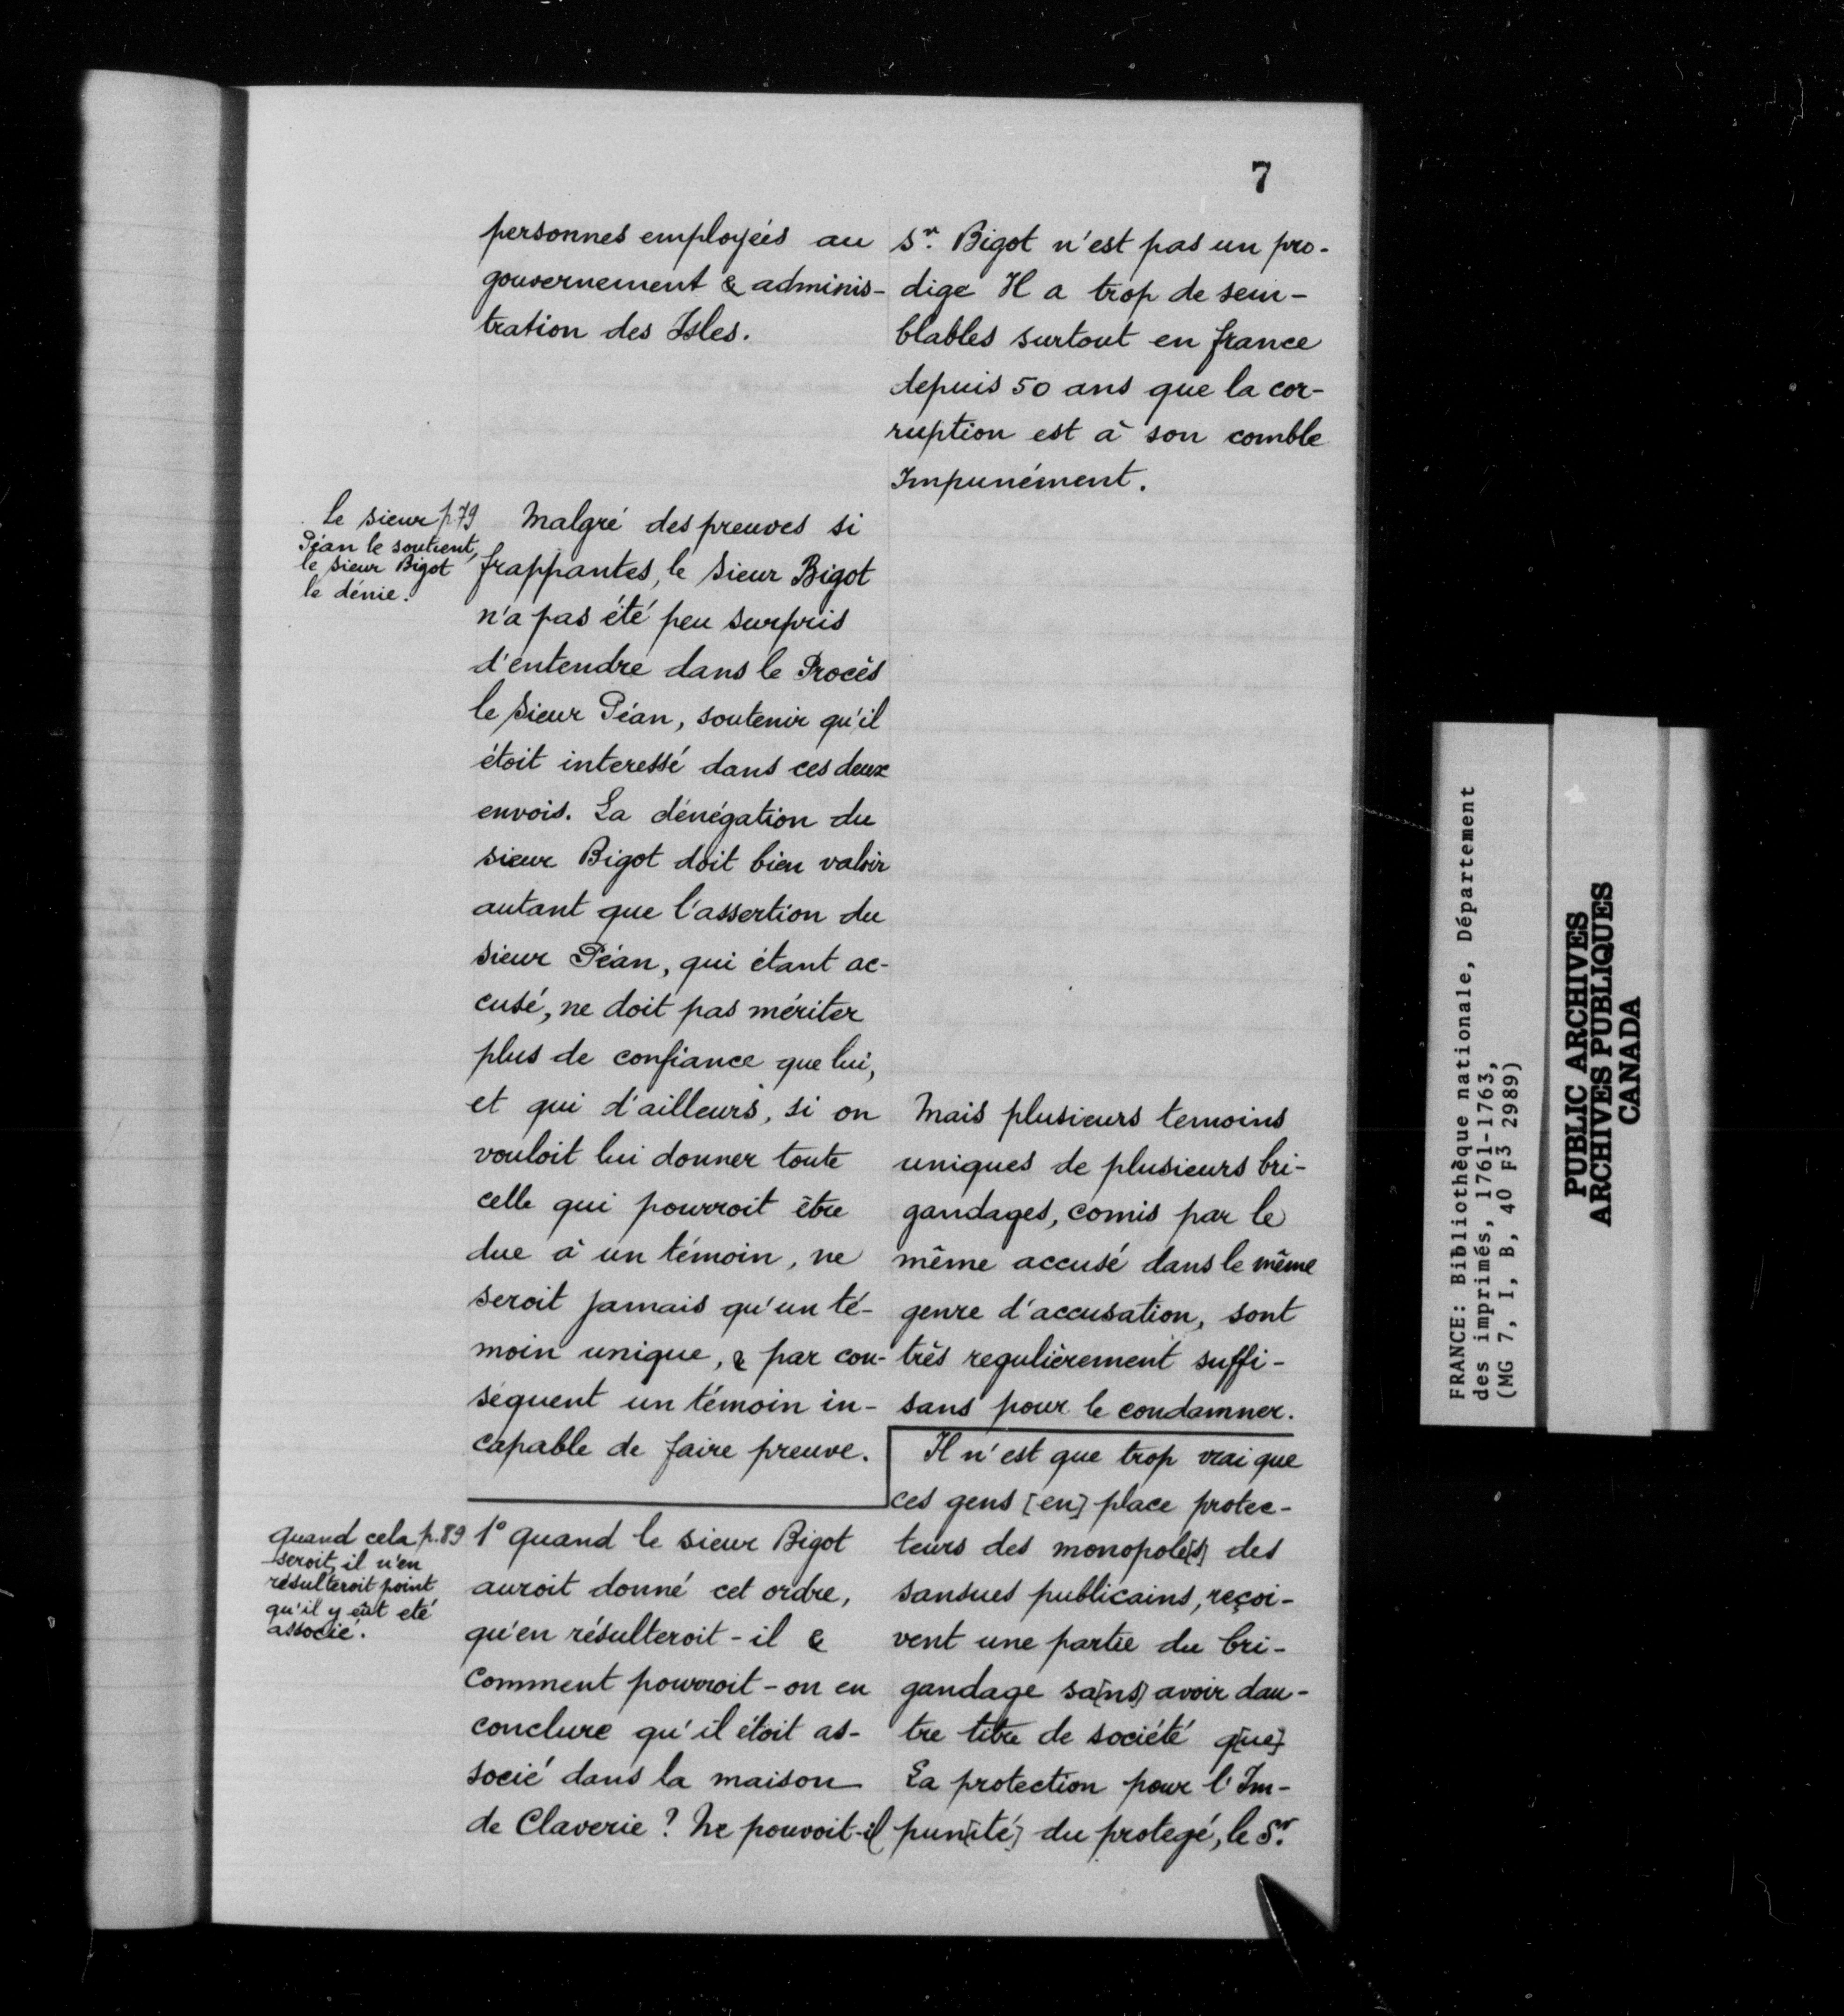 7
personnes employées au
gouvernement & adminis-
tration des Isles.
Sr. Bigot n'est pas un pro-
dige Il a trop de sem-
blables surtout en france
depuis 50 ans que la cor-
ruption est à son comble
Impunément.
Le sieur p.79
Péan le soutient,
le sieur Bigot
le dénie.
Malgré des preuves si
frappantes, le sieur Bigot
n'a pas été peu surpris
d'entendre dans le Procès
le sieur Péan, soutenir qu'il
étoit interessé dans ces deux
envois. La dénégation du
sieur Bigot doit bien valoir
autant que l'assertion du
sieur Péan, qui étant ac-
cusé, ne doit pas mériter
plus de confiance que lui,
et qui d'ailleurs, si on
vouloit lui donner toute
celle qui pourroit être
due à un témoin, ne
seroit jamais qu'un té-
moin unique, & par con-
séquent un témoin in-
capable de faire preuve.
Mais plusieurs temoins
uniques de plusieurs bri-
gandages, comis par le
même accusé dans le même
genre d'accusation, sont
très regulièrement suffi-
sans pour le condamner.
quand cela p.89
seroit, il n'en
résulteroit point
qu'il y eût eté
associé.
1° quand le sieur Bigot
auroit donné cet ordre,
qu'en résulteroit-il &
comment pourroit-on en
conclure qu'il étoit as-
socié dans la maison
de Claverie ? Ne pouvoit-il
Il n'est que trop vrai que
ces gens [en] place protec-
teurs des monopole[s] des
sansues publicains, reçoi-
vent une partie du bri-
gandage sa[ns] avoir dau-
tre titre de société q[ue]
La protection pour l'Im-
pun[ité] du protegé, le Sr.
FRANCE: Bibliothèque nationale, Département
des imprimés, 1761-1763,
(MG 7, I, B, 40 F3 2989)
PUBLIC ARCHIVES
ARCHIVES PUBLIQUES
CANADA